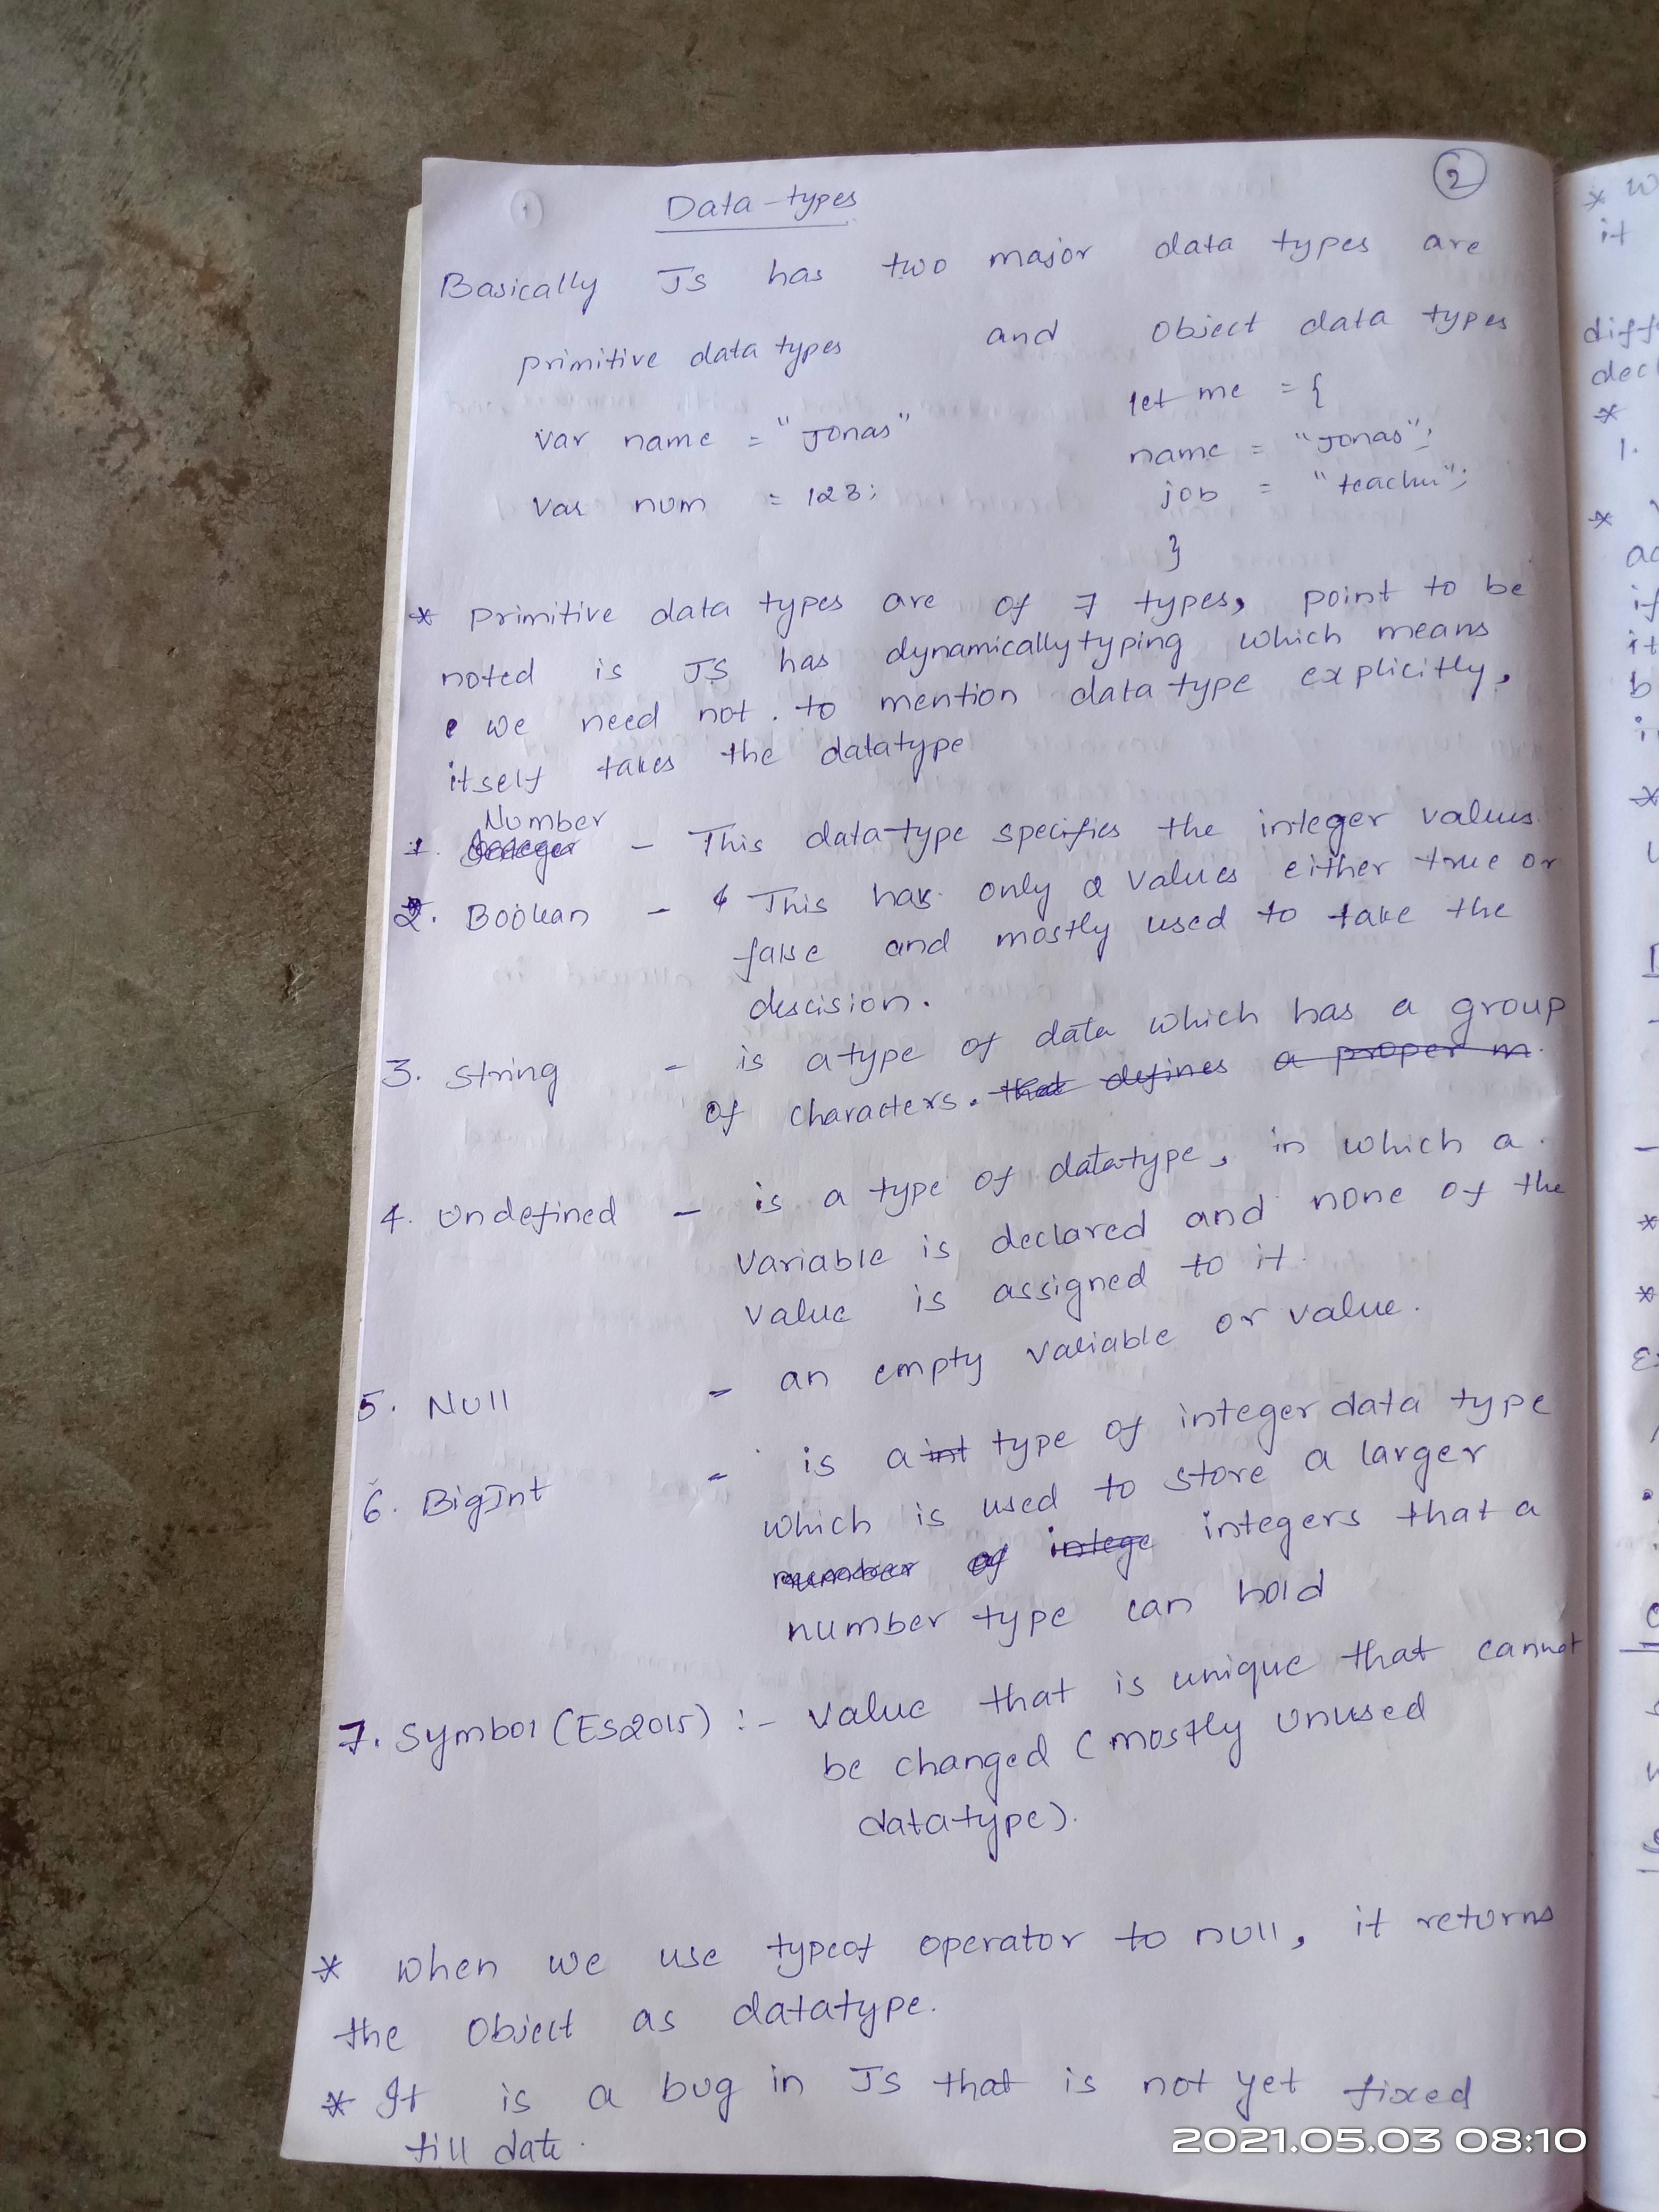 2
Data-types
Basically JS has two major data types are
primitive data types and Object data types
var name = "Jonas"
var num = 123;
let me = {
name = "Jonas";
job = "teacher";
}
* primitive data types are of 7 types, point to be
noted is JS has dynamicallytyping which means
we need not. to mention data type explicitly,
itself takes the datatype
Number
1. - This data-type specifies the integer values.
2. Boolean - This has only 2 values either true or
false and mostly used to take the
descision.
3. String - is a type of data which has a group
of characters. that defines a proper m
4. Undefined - is a type of datatype, in which a
variable is declared and none of the
value is assigned to it.
5. Null - an empty variable or value.
6. BigInt - is a int type of integer data type
which is used to store a larger
number of intege integers that a
number type can hold
7. Symbol (ES2015) :- Value that is unique that cannot
be changed (mostly unused
datatype).
* when we use typeof operator to null, it returns
the Object as datatype.
* It is a bug in JS that is not yet fixed
till date.
* W
it
diff
decl
*
1.
*
if
it
b
*
*
*
2021.05.03 08:10